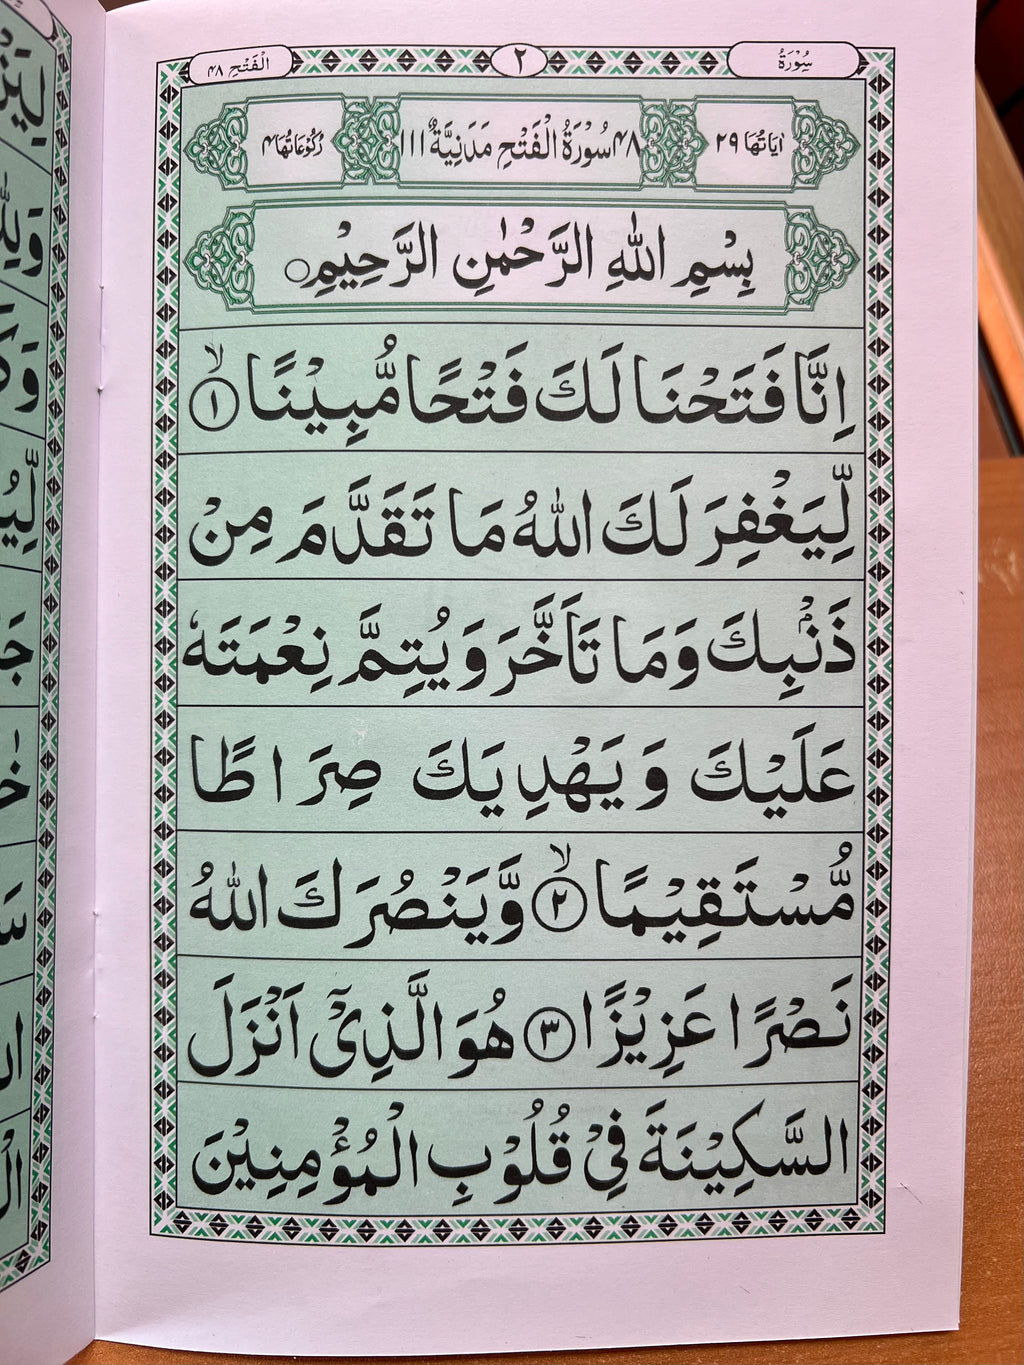 سُوْرَةُ
٢
اَلْفَتْحِ ٤٨
اٰيَاتُهَا ٢٩
٤٨ سُوْرَةُ الْفَتْحِ مَدَنِيَّةٌ ١١١
رُكُوْعَاتُهَا ٤
بِسْمِ اللّٰهِ الرَّحْمٰنِ الرَّحِيْمِ ○
اِنَّا فَتَحْنَا لَكَ فَتْحًا مُّبِيْنًا ۙ ١
لِّيَغْفِرَ لَكَ اللّٰهُ مَا تَقَدَّمَ مِنْ
ذَنْۢبِكَ وَمَا تَاَخَّرَ وَيُتِمَّ نِعْمَتَهٗ
عَلَيْكَ وَيَهْدِيَكَ صِرَاطًا
مُّسْتَقِيْمًا ۙ ٢ وَّيَنْصُرَكَ اللّٰهُ
نَصْرًا عَزِيْزًا ٣ هُوَ الَّذِيْۤ اَنْزَلَ
السَّكِيْنَةَ فِيْ قُلُوْبِ الْمُؤْمِنِيْنَ